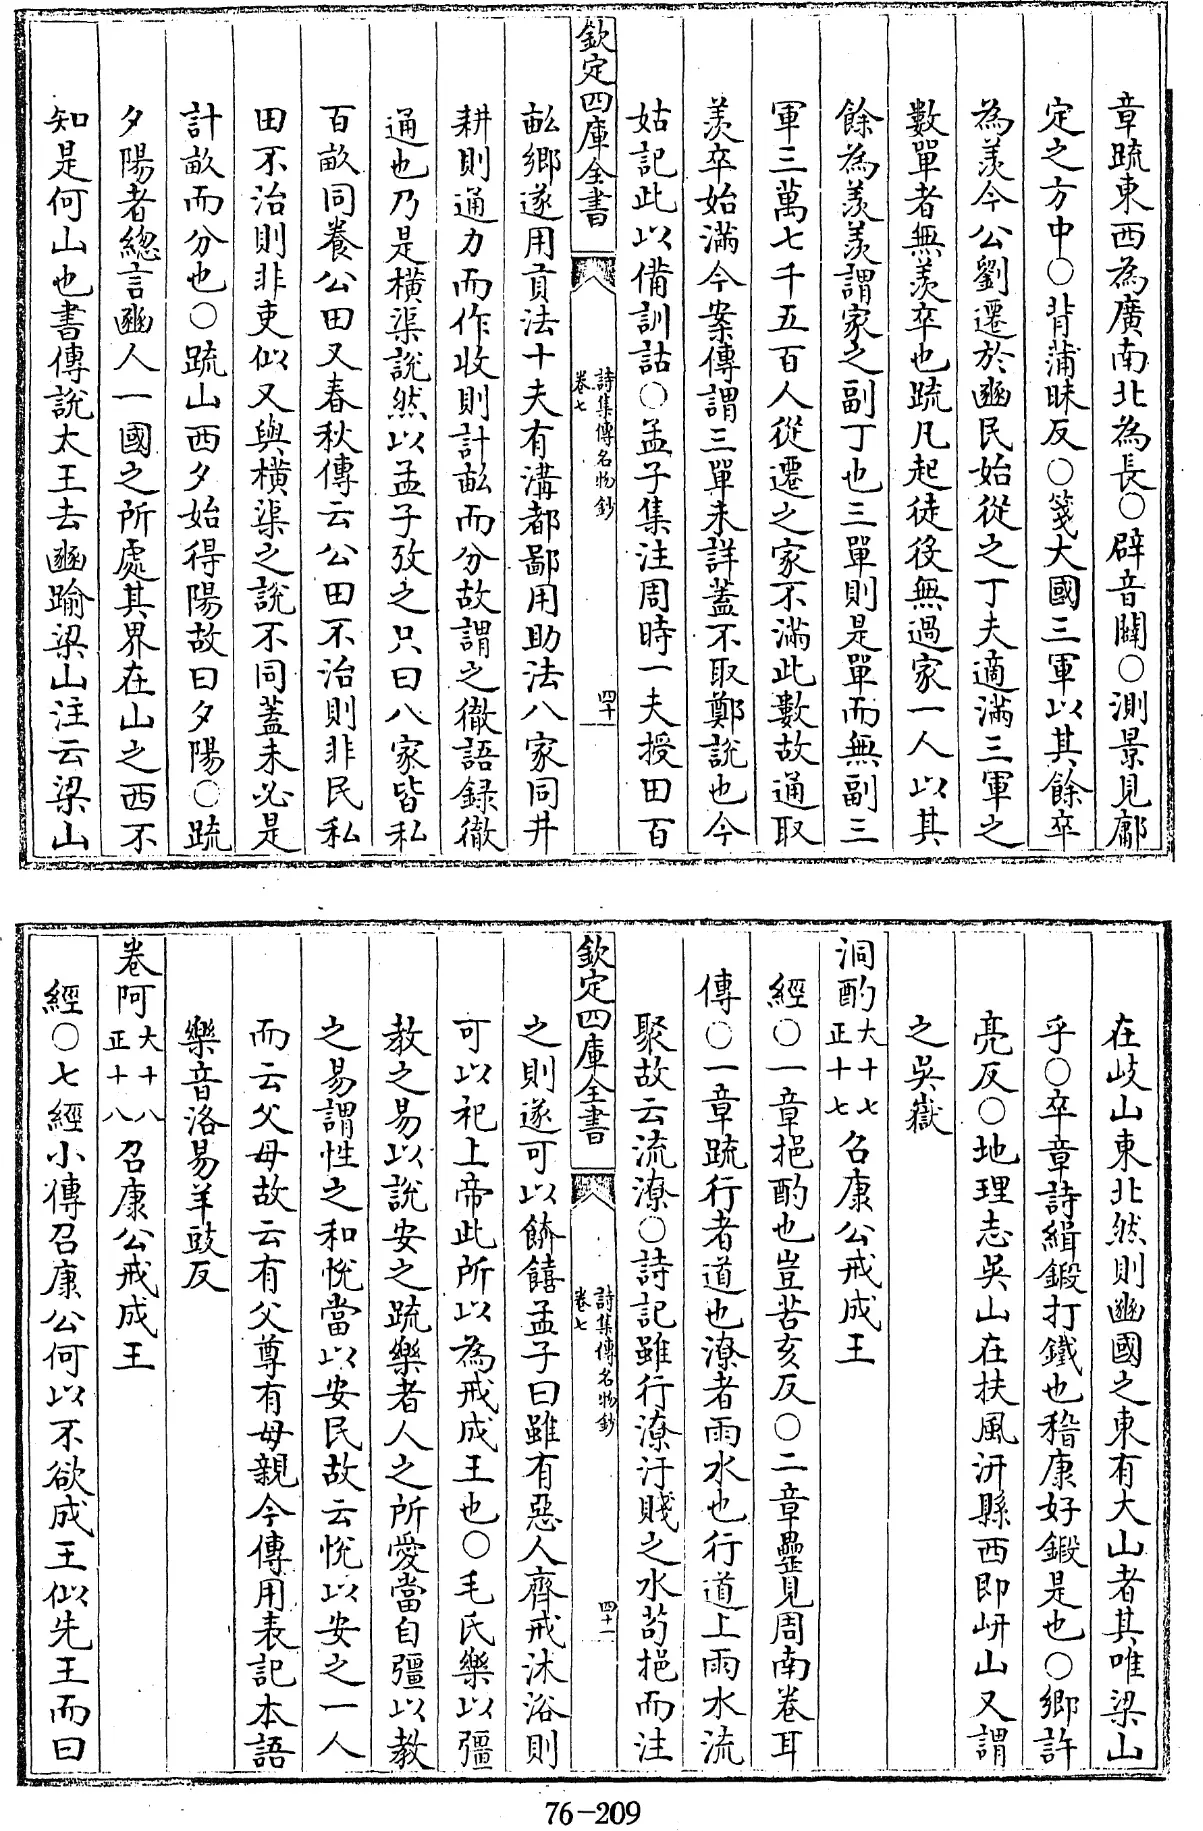 章疏東西為廣南北為長○辟音闢○測景見鄘
定之方中○背蒲昧反○箋大國三軍以其餘卒
為羨今公劉遷於豳民始從之丁夫適滿三軍之
數單者無羨卒也疏凡起徒役無過家一人以其
餘為羨羨謂家之副丁也三單則是單而無副三
軍三萬七千五百人從遷之家不滿此數故通取
羨卒始滿今案傳謂三單未詳蓋不取鄭說也今
姑記此以備訓詁○孟子集注周時一夫授田百
欽定四庫全書
詩集傳名物鈔
卷七
四十
畝鄉遂用貢法十夫有溝都鄙用助法八家同井
耕則通力而作收則計畝而分故謂之徹語録徹
通也乃是橫渠說然以孟子攷之只曰八家皆私
百畝同養公田又春秋傳云公田不治則非民私
田不治則非吏似又與橫渠之說不同蓋未必是
計畝而分也○疏山西夕始得陽故曰夕陽○疏
夕陽者總言豳人一國之所處其界在山之西不
知是何山也書傳說太王去豳踰梁山注云梁山
在岐山東北然則豳國之東有大山者其唯梁山
乎○卒章詩緝鍛打鐵也稽康好鍛是也○鄉許
亮反○地理志吳山在扶風汧縣西即岍山又謂
之吳嶽
泂酌大十七正十七 召康公戒成王
經○一章挹酌也豈苦亥反○二章罍見周南卷耳
傳○一章疏行者道也潦者雨水也行道上雨水流
聚故云流潦○詩記雖行潦汙賤之水茍挹而注
欽定四庫全書
詩集傳名物鈔
卷七
四十一
之則遂可以餴饎孟子曰雖有惡人齊戒沐浴則
可以祀上帝此所以為戒成王也○毛氏樂以彊
教之易以說安之疏樂者人之所愛當自彊以教
之易謂性之和悅當以安民故云悅以安之一人
而云父母故云有父尊有母親今傳用表記本語
樂音洛易羊豉反
卷阿大十八正十八 召康公戒成王
經○七經小傳召康公何以不欲成王似先王而曰
76-209